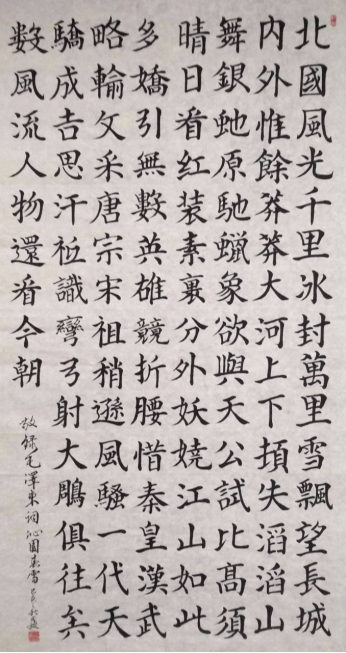 北國風光千里冰封萬里雪飄望長城
内外惟餘莽莽大河上下頓失滔滔山
舞銀虵原馳蠟象欲與天公試比髙須
晴日看红装素裹分外妖嬈江山如此
多嬌引無數英雄競折腰惜秦皇漢武
略輸文采唐宗宋祖稍遜風騷一代天
驕成吉思汗祗識彎弓射大鵰俱往矣
數風流人物還看今朝
敬録毛澤東詞沁園春雪